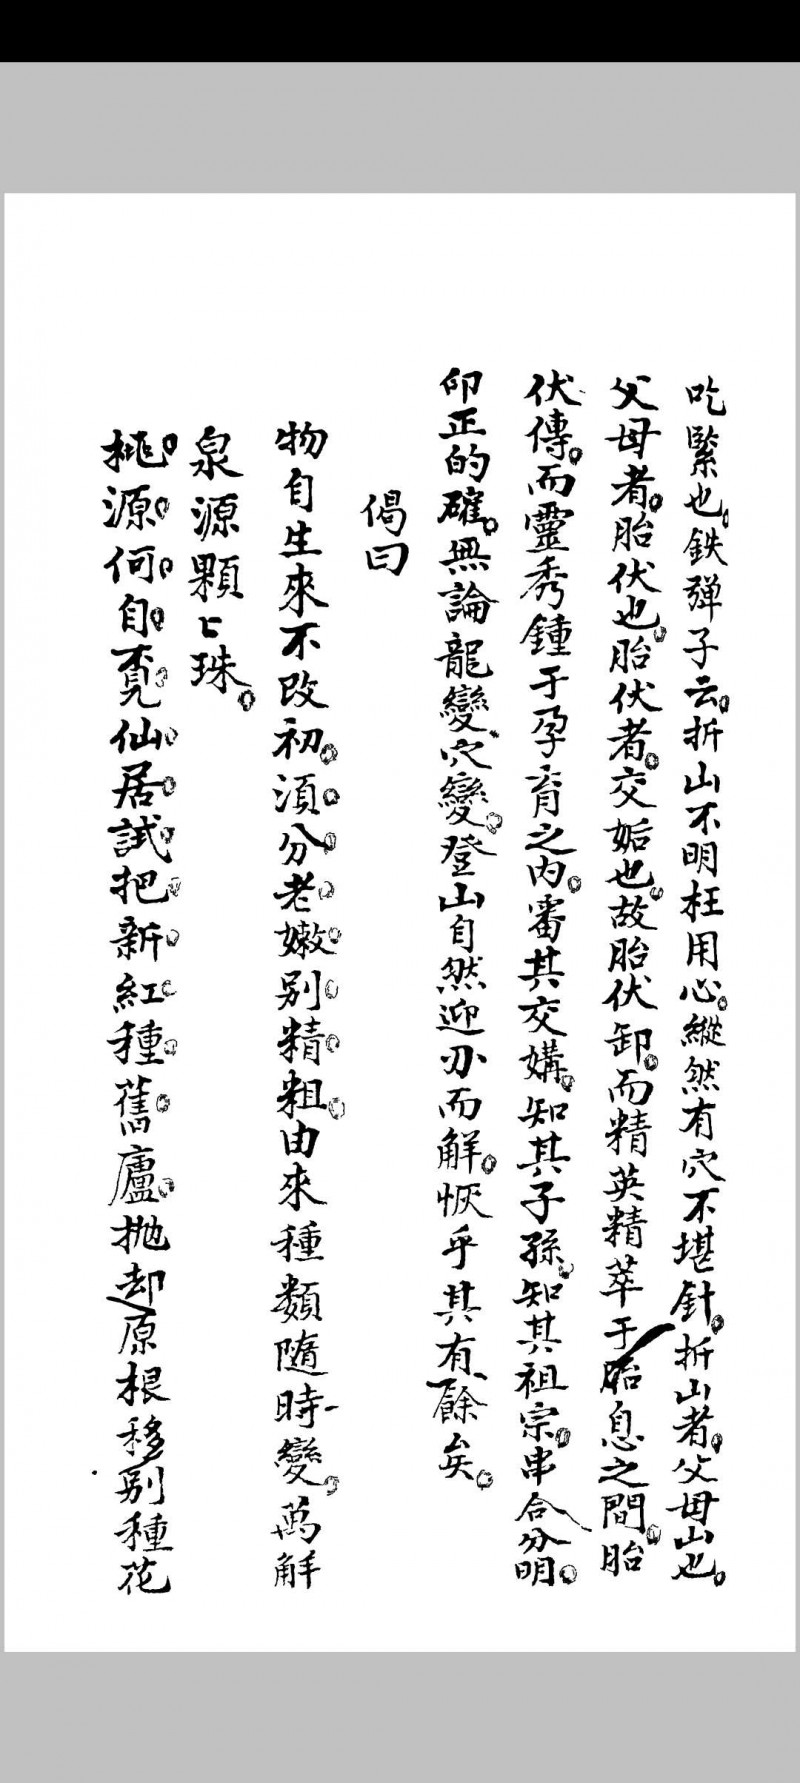 吃緊也。鉄彈子云。折山不明枉用心。縱然有穴不堪針。折山者。父母山也。
父母者。胎伏也。胎伏者。交姤也。故胎伏卸。而精英精萃于胎息之間。胎
伏傳。而靈秀鍾于孕育之内。審其交媾。知其子孫。知其祖宗。串合分明。
卬正的確。無論龍變穴變。登山自然迎刃而解。恢乎其有餘矣。
偈曰
物自生來不改初。須分老嫩别精粗。由來種類隨時變。萬斛
泉源顆〻珠。
桃源何自覔仙居。試把新紅種舊廬。抛却原根移别種花